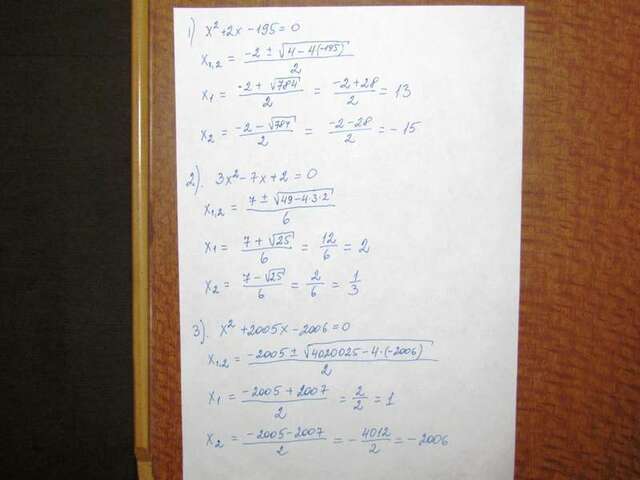 1) x² + 2x - 195 = 0
x₁,₂ = (-2 ± √(4 - 4(-195))) / 2
x₁ = (-2 + √784) / 2 = (-2 + 28) / 2 = 13
x₂ = (-2 - √784) / 2 = (-2 - 28) / 2 = -15
2). 3x² - 7x + 2 = 0
x₁,₂ = (7 ± √(49 - 4·3·2)) / 6
x₁ = (7 + √25) / 6 = 12/6 = 2
x₂ = (7 - √25) / 6 = 2/6 = 1/3
3). x² + 2005x - 2006 = 0
x₁,₂ = (-2005 ± √(4020025 - 4·(-2006))) / 2
x₁ = (-2005 + 2007) / 2 = 2/2 = 1
x₂ = (-2005 - 2007) / 2 = -4012/2 = -2006